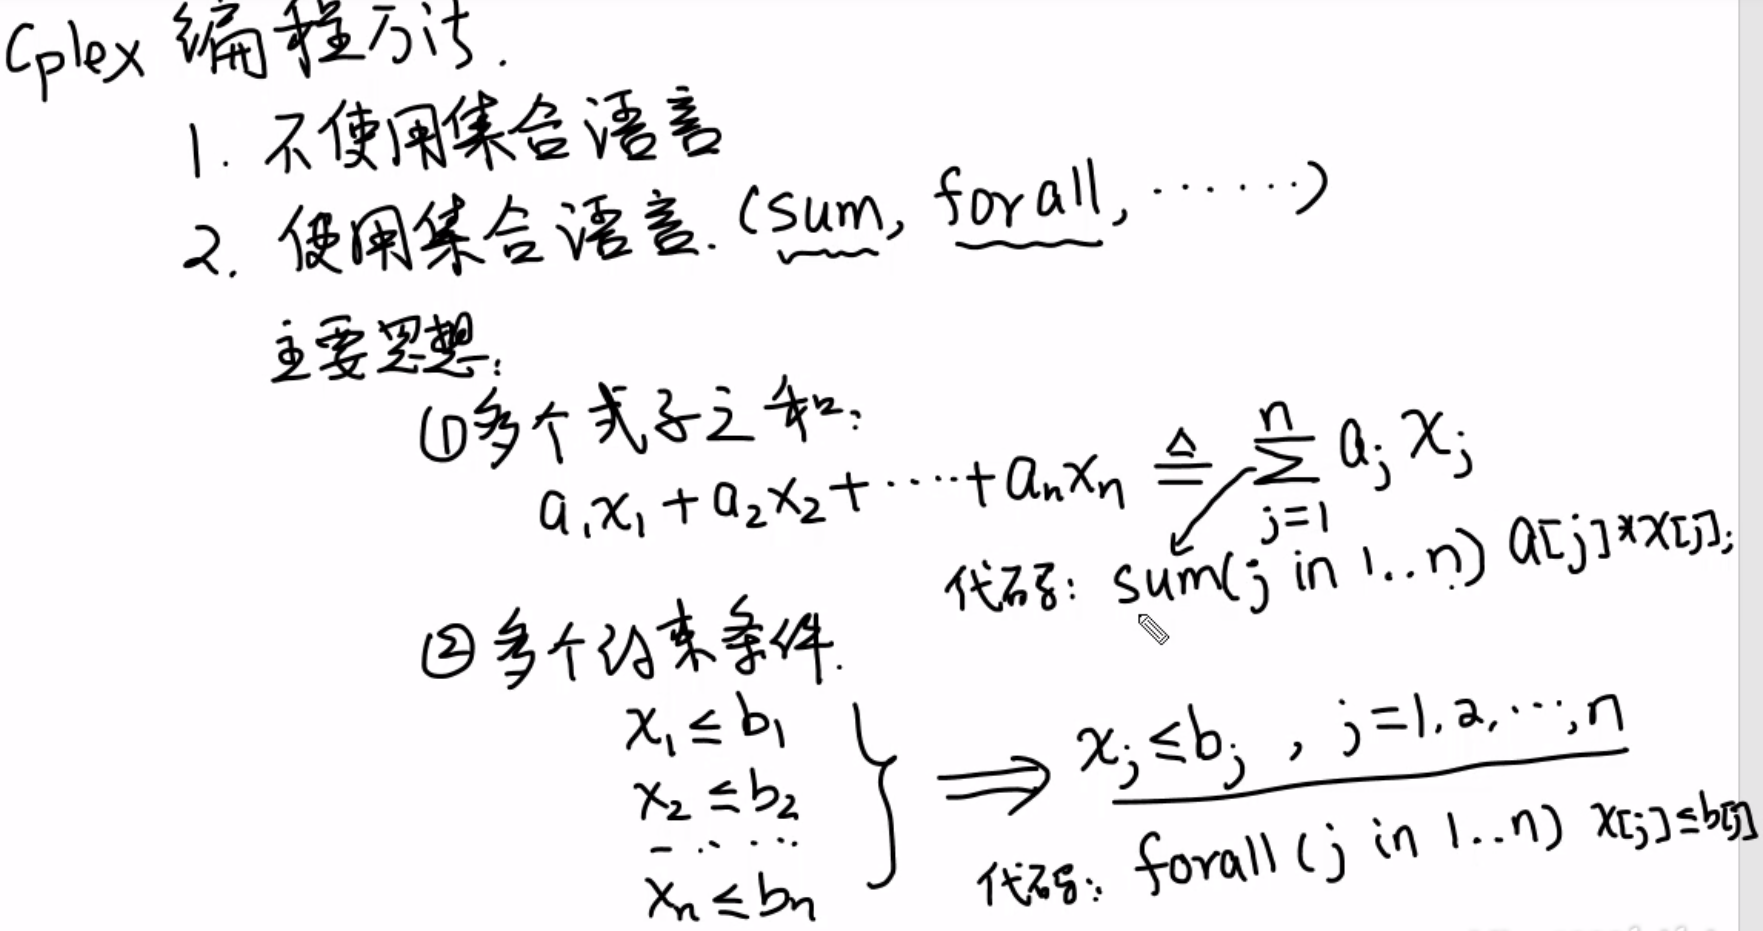 Cplex 编程方法.
1. 不使用集合语言
2. 使用集合语言. (sum, forall, ······)
主要思想:
①多个式子之和:
a₁x₁ + a₂x₂ + ····· + aₙxₙ ≜ ∑ⁿⱼ₌₁ aⱼ xⱼ
代码: sum(j in 1..n) a[j]*x[j];
②多个约束条件.
x₁ ≤ b₁
x₂ ≤ b₂
· · · · ·
xₙ ≤ bₙ
⟹ xⱼ ≤ bⱼ , j=1,2,···,n
代码: forall (j in 1..n) x[j] ≤ b[j]